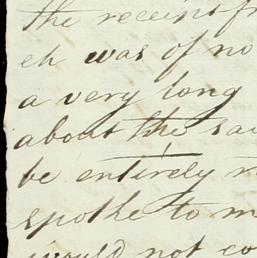 the receipt fr
ch was of no
a very long
about the sa
be entirely
spoke to m
would not co